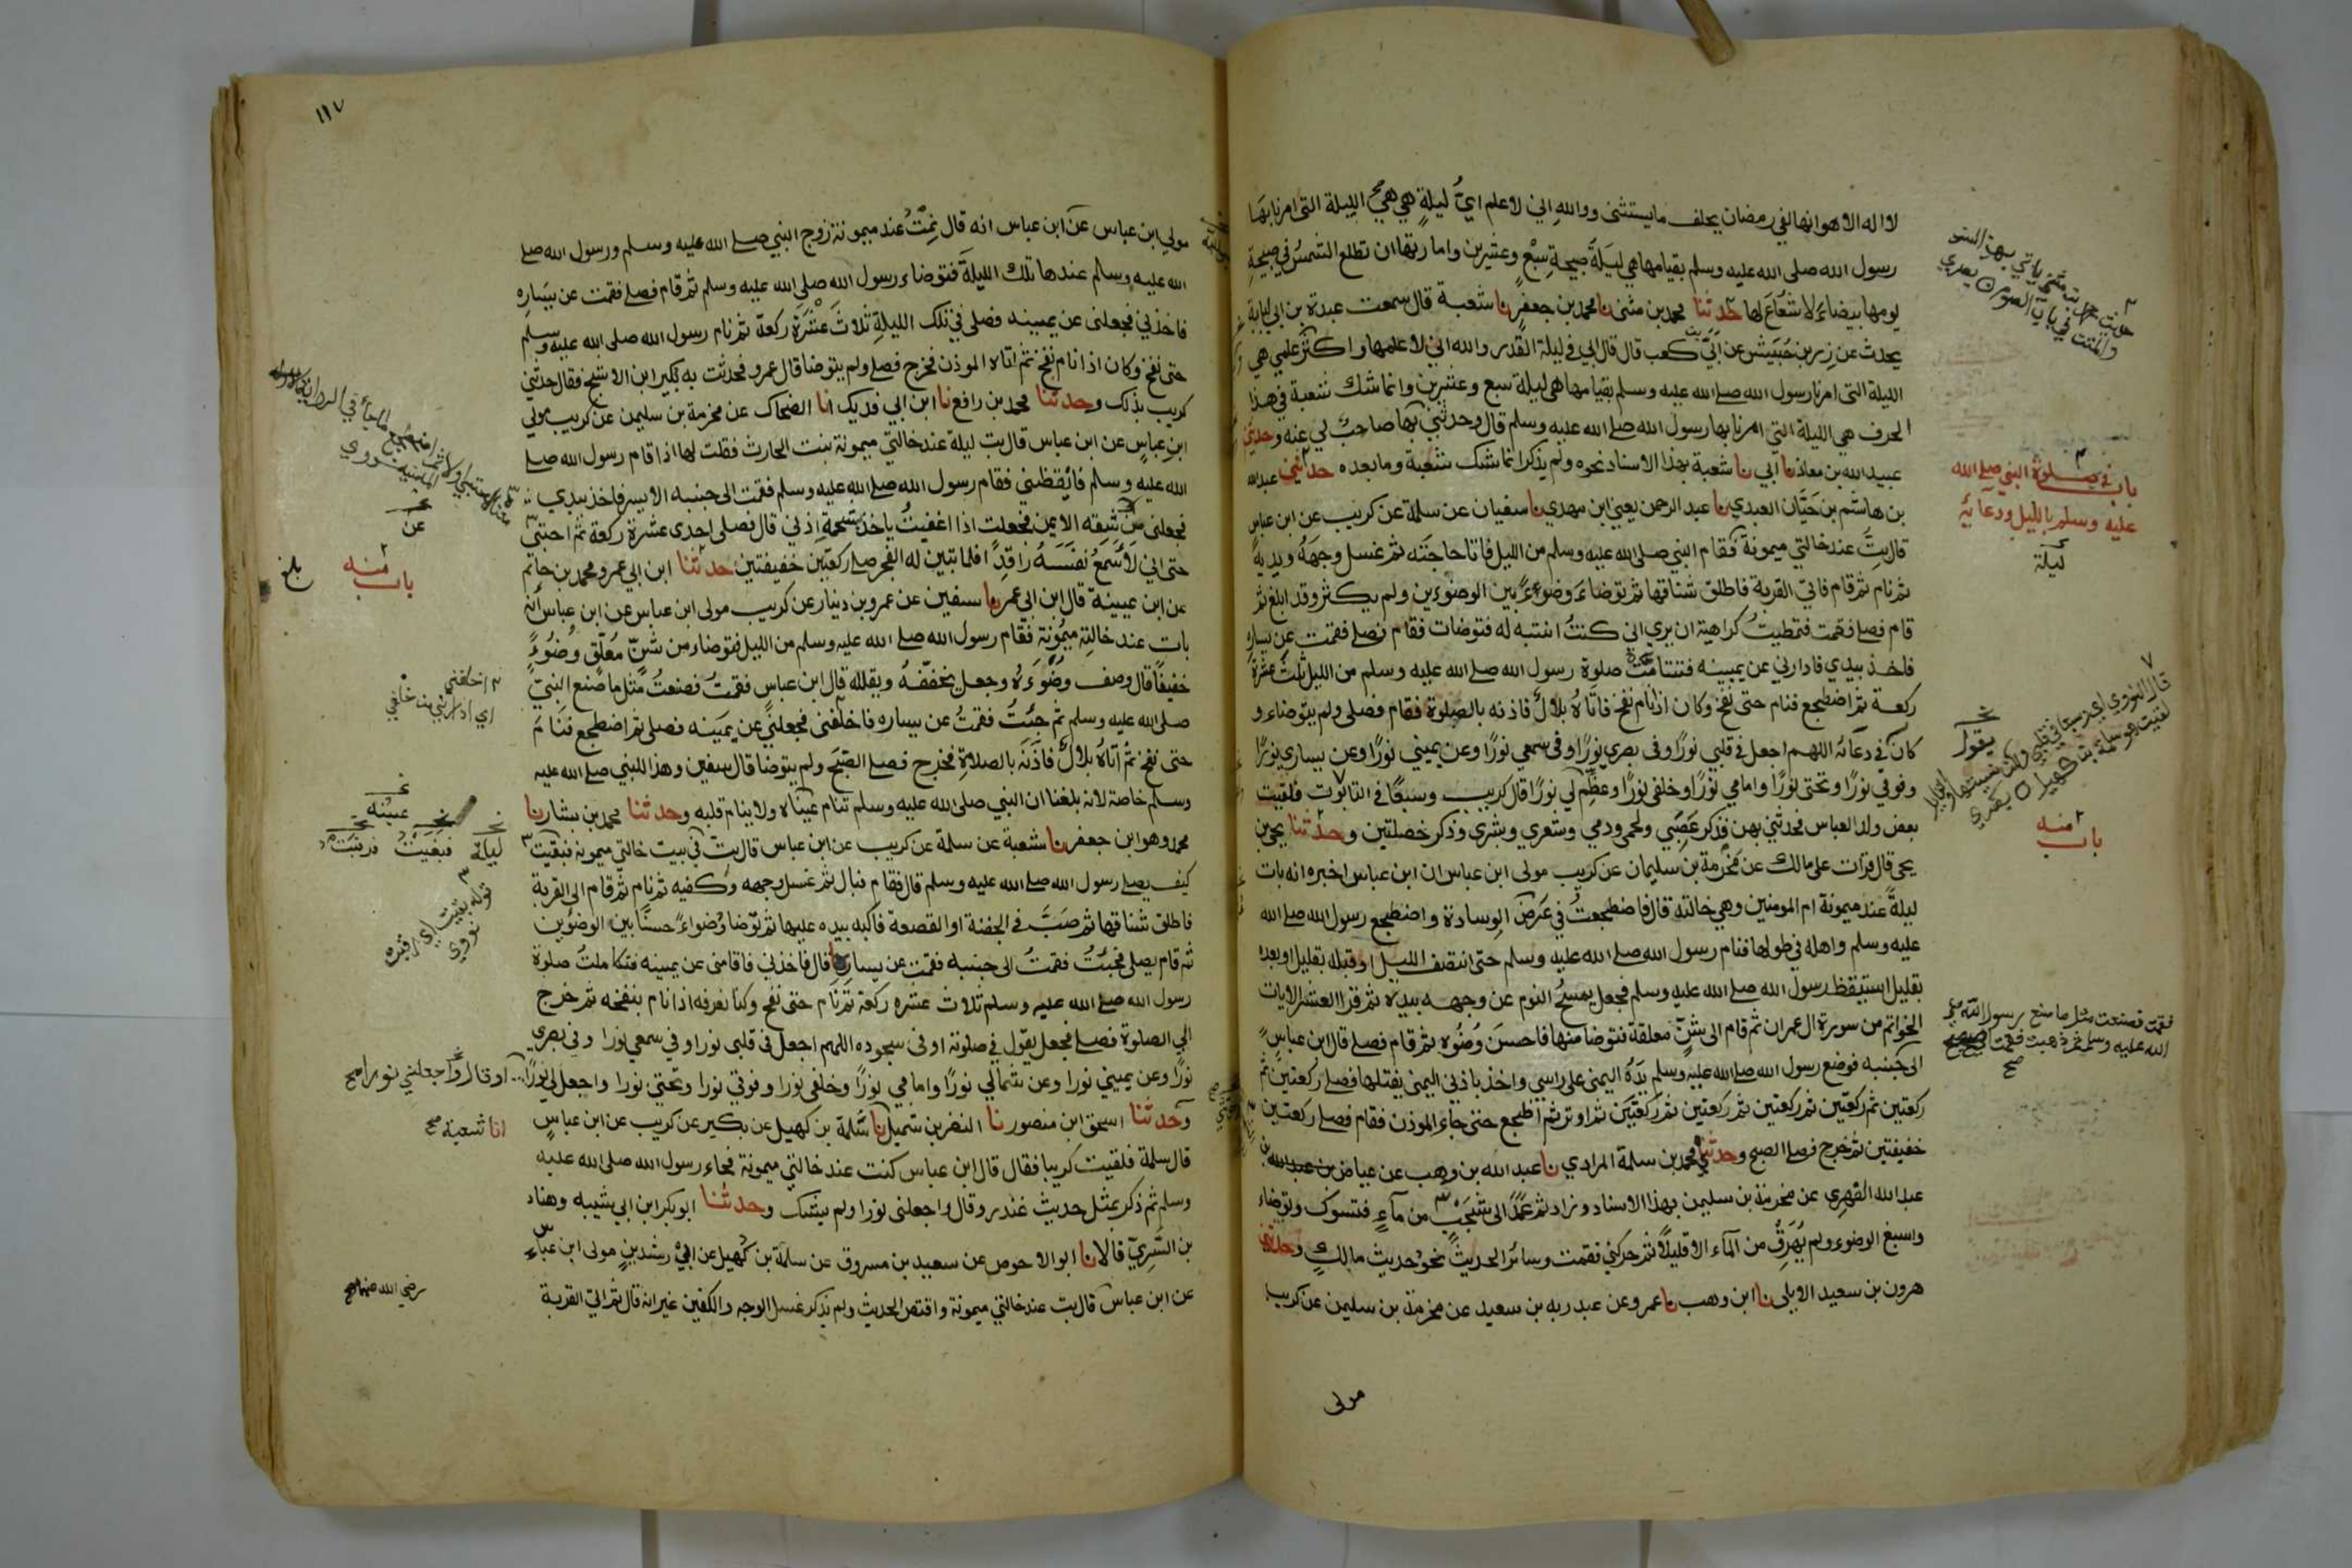 لا اله الا هو انها لفي رمضان يحلف ما يستثنى ووالله اني لاعلم اي ليلة هي هي الليلة التى امرنا بها
رسول الله صلى الله عليه وسلم بقيامها هي ليلة صبيحة سبع وعشرين وامارتها ان تطلع الشمس في صبيحة
يومها بيضاء لا شعاع لها حدثنا محمد بن مثنى نا محمد بن جعفر نا شعبة قال سمعت عبدة بن ابي لبابة
يحدث عن زر بن حبيش عن ابي بن كعب قال قال ابي في ليلة القدر والله اني لاعلمها واكثر علمي هي
الليلة التى امرنا رسول الله صلى الله عليه وسلم بقيامها هى ليلة سبع وعشرين وانما شك شعبة في هذا
الحرف هي الليلة التي امرنا بها رسول الله صلى الله عليه وسلم قال وحدثني بها صاحب لي عنه وحدثني
عبيد الله بن معاذ نا ابي نا شعبة بهذا الاسناد نحوه ولم يذكر انما شك شعبة وما بعده حدثني عبد الله
بن هاشم بن حيان العبدي نا عبد الرحمن يعني ابن مهدي نا سفيان عن سلمة عن كريب عن ابن عباس
قال بت عند خالتي ميمونة فقام النبي صلى الله عليه وسلم من الليل فاتا حاجته ثم غسل وجهه ويديه
ثم نام ثم قام فاتى القربة فاطلق شناقها ثم توضاء وضوءً بين الوضوءين ولم يكثر وقد ابلغ ثم
قام فصلى فقمت فتمطيت كراهية ان يرى اني كنت انتبه له فتوضات فقام فصلى فقمت عن يساره
فاخذ بيدي فادارني عن يمينه فتتامت صلوة رسول الله صلى الله عليه وسلم من الليل ثلث عشرة
ركعة ثم اضطجع فنام حتى نفخ وكان اذا نام نفخ فاتاه بلال فاذنه بالصلوة فقام فصلى ولم يتوضاء و
كان في دعائه اللهم اجعل في قلبي نورًا وفى بصري نورًا وفى سمعي نورًا وعن يميني نورًا وعن يساري نورًا
وفوقي نورًا وتحتى نورًا وامامي نورًا وخلفى نورًا وعظم لي نورًا قال كريب وسبعًا في التابوت فلقيت
بعض ولد العباس فحدثني بهن فذكر عصبي ولحمى ودمي وشعري وبشري وذكر خصلتين وحدثنا يحيى بن
يحى قال قرات على مالك عن مخرمة بن سليمان عن كريب مولى ابن عباس ان ابن عباس اخبره انه بات
ليلةً عند ميمونة ام المومنين وهي خالته قال فاضطجعت في عرض الوسادة واضطجع رسول الله صلى الله
عليه وسلم واهله في طولها فنام رسول الله صلى الله عليه وسلم حتى انتصف الليل او قبله بقليل او بعده
بقليل استيقظ رسول الله صلى الله عليه وسلم فجعل يمسح النوم عن وجهه بيده ثم قرا العشر الايات
الخواتم من سورة ال عمران ثم قام الى شن معلقة فتوضا منها فاحسن وضوءه ثم قام فصلى قال ابن عباس
الى جنبه فوضع رسول الله صلى الله عليه وسلم يده اليمنى على راسي واخذ باذني اليمنى يفتلها فصلى ركعتين ثم
ركعتين ثم ركعتين ثم ركعتين ثم ركعتين ثم ركعتين ثم اوتر ثم اظجع حتى جاء الموذن فقام فصلى ركعتين
خفيفتين ثم خرج فصلى الصبح وحدثني محمد بن سلمة المرادي نا عبد الله بن وهب عن عياض بن عبد الله
عبد الله الفهري عن مخرمة بن سليمن بهذا الاسناد وزاد ثم عمد الى شجب من ماء فتسوك وتوضاء
واسبغ الوضوء ولم يهرق من الماء الا قليلًا ثم حركني فقمت وسائر الحديث نحو حديث مالك وحدثني
هرون بن سعيد الايلى نا ابن وهب نا عمرو عن عبد ربه بن سعيد عن مخرمة بن سليمن عن كريب
مولى
باب في صلوة النبي صلى الله
عليه وسلم بالليل ودعائه
ليلة
يقول
باب منه
فقمت فصنعت مثل ما صنع رسول الله صلى
الله عليه وسلم ثم ذهبت فقمت
صح
١١٧
مولي ابن عباس عن ابن عباس انه قال نمت عند ميمونة زوج النبي صلى الله عليه وسلم ورسول الله صلى
الله عليه وسلم عندها تلك الليلة فتوضاء رسول الله صلى الله عليه وسلم ثم قام فصلى فقمت عن يساره
فاخذني فجعلنى عن يمينه فصلى في تلك الليلة ثلاث عشرة ركعة ثم نام رسول الله صلى الله عليه وسلم
حتى نفخ وكان اذا نام نفخ ثم اتاه الموذن فخرج فصلى ولم يتوضا قال عمرو فحدثت به بكير ابن الاشج فقال حدثني
كريب بذلك وحدثنا محمد بن رافع نا ابن ابي فديك انا الضحاك عن مخرمة بن سليمن عن كريب مولي
ابن عباس عن ابن عباس قال بت ليلة عند خالتي ميمونة بنت الحارث فقلت لها اذا قام رسول الله صلى
الله عليه وسلم فايقظني فقام رسول الله صلى الله عليه وسلم فقمت الى جنبه الايسر فاخذ بيدي
فجعلني من شقه الايمن فجعلت اذا اغفيت ياخذ بشحمة اذني قال فصلى احدى عشرة ركعة ثم احتبى
حتى اني لاسمع نفسه راقدًا فلما تبين له الفجر صلى ركعتين خفيفتين حدثنا ابن ابي عمرو محمد بن حاتم
عن ابن عيينة قال ابن ابي عمر نا سفين عن عمرو بن دينار عن كريب مولى ابن عباس عن ابن عباس انه
بات عند خالته ميمونة فقام رسول الله صلى الله عليه وسلم من الليل فتوضاء من شن معلق وضوءً
خفيفًا قال وصف وضوءه وجعل يخففه ويقلله قال ابن عباس فقمت فصنعت مثل ما صنع النبي
صلى الله عليه وسلم ثم جئت فقمت عن يساره فاخلفنى فجعلني عن يمينه فصلى ثم اضطجع فنام
حتى نفخ ثم اتاه بلال فاذنه بالصلاة فخرج فصلى الصبح ولم يتوضا قال سفين وهذا للنبي صلى الله عليه
وسلم خاصة لانه بلغنا ان النبي صلى الله عليه وسلم تنام عيناه ولا ينام قلبه وحدثنا محمد بن بشار نا
محمد وهو ابن جعفر نا شعبة عن سلمة عن كريب عن ابن عباس قال بت في بيت خالتي ميمونة فبقيت
كيف يصلى رسول الله صلى الله عليه وسلم قال فقام فبال ثم غسل وجهه وكفيه ثم نام ثم قام الى القربة
فاطلق شناقها ثم صب في الجفنة او القصعة فاكبه بيده عليها ثم توضا وضواءً حسنًا بين الوضوين
ثم قام يصلى فجئت فقمت الى جنبه فقمت عن يساره قال فاخذني فاقامنى عن يمينه فتكاملت صلوة
رسول الله صلى الله عليه وسلم ثلاث عشره ركعة ثم نام حتى نفخ وكنا نعرفه اذا نام بنفخه ثم خرج
الي الصلوة فصلى فجعل يقول في صلوته او في سجوده اللهم اجعل في قلبى نورا وفي سمعي نورا وفي بصري
نورًا وعن يميني نورا وعن شمالي نورًا وامامي نورًا وخلفى نورا وفوقي نورا وتحتى نورا واجعل لي نورًا او قال واجعلني نورا صح
وحدثنا اسحق ابن منصور نا النضر بن شميل نا سلمة بن كهيل عن بكير عن كريب عن ابن عباس
قال سلمة فلقيت كريبا فقال قال ابن عباس كنت عند خالتي ميمونة فجاء رسول الله صلى الله عليه
وسلم ثم ذكر بمثل حديث غندر وقال واجعلنى نورا ولم يشك وحدثنا ابو بكر ابن ابي شيبه وهناد
بن السري قالا نا ابو الاحوص عن سعيد بن مسروق عن سلمة بن كهيل عن ابي رشدين مولى ابن عباس
عن ابن عباس قال بت عند خالتي ميمونة واقتص الحديث ولم يذكر غسل الوجه والكفين غير انه قال ثم اتى القربة
عن
باب منه
بلغ
اي ادارني من خلفي
عينه
ليلة
قوله بقيت اي
نووي
انا شعبة صح
رضي الله عنهما صح